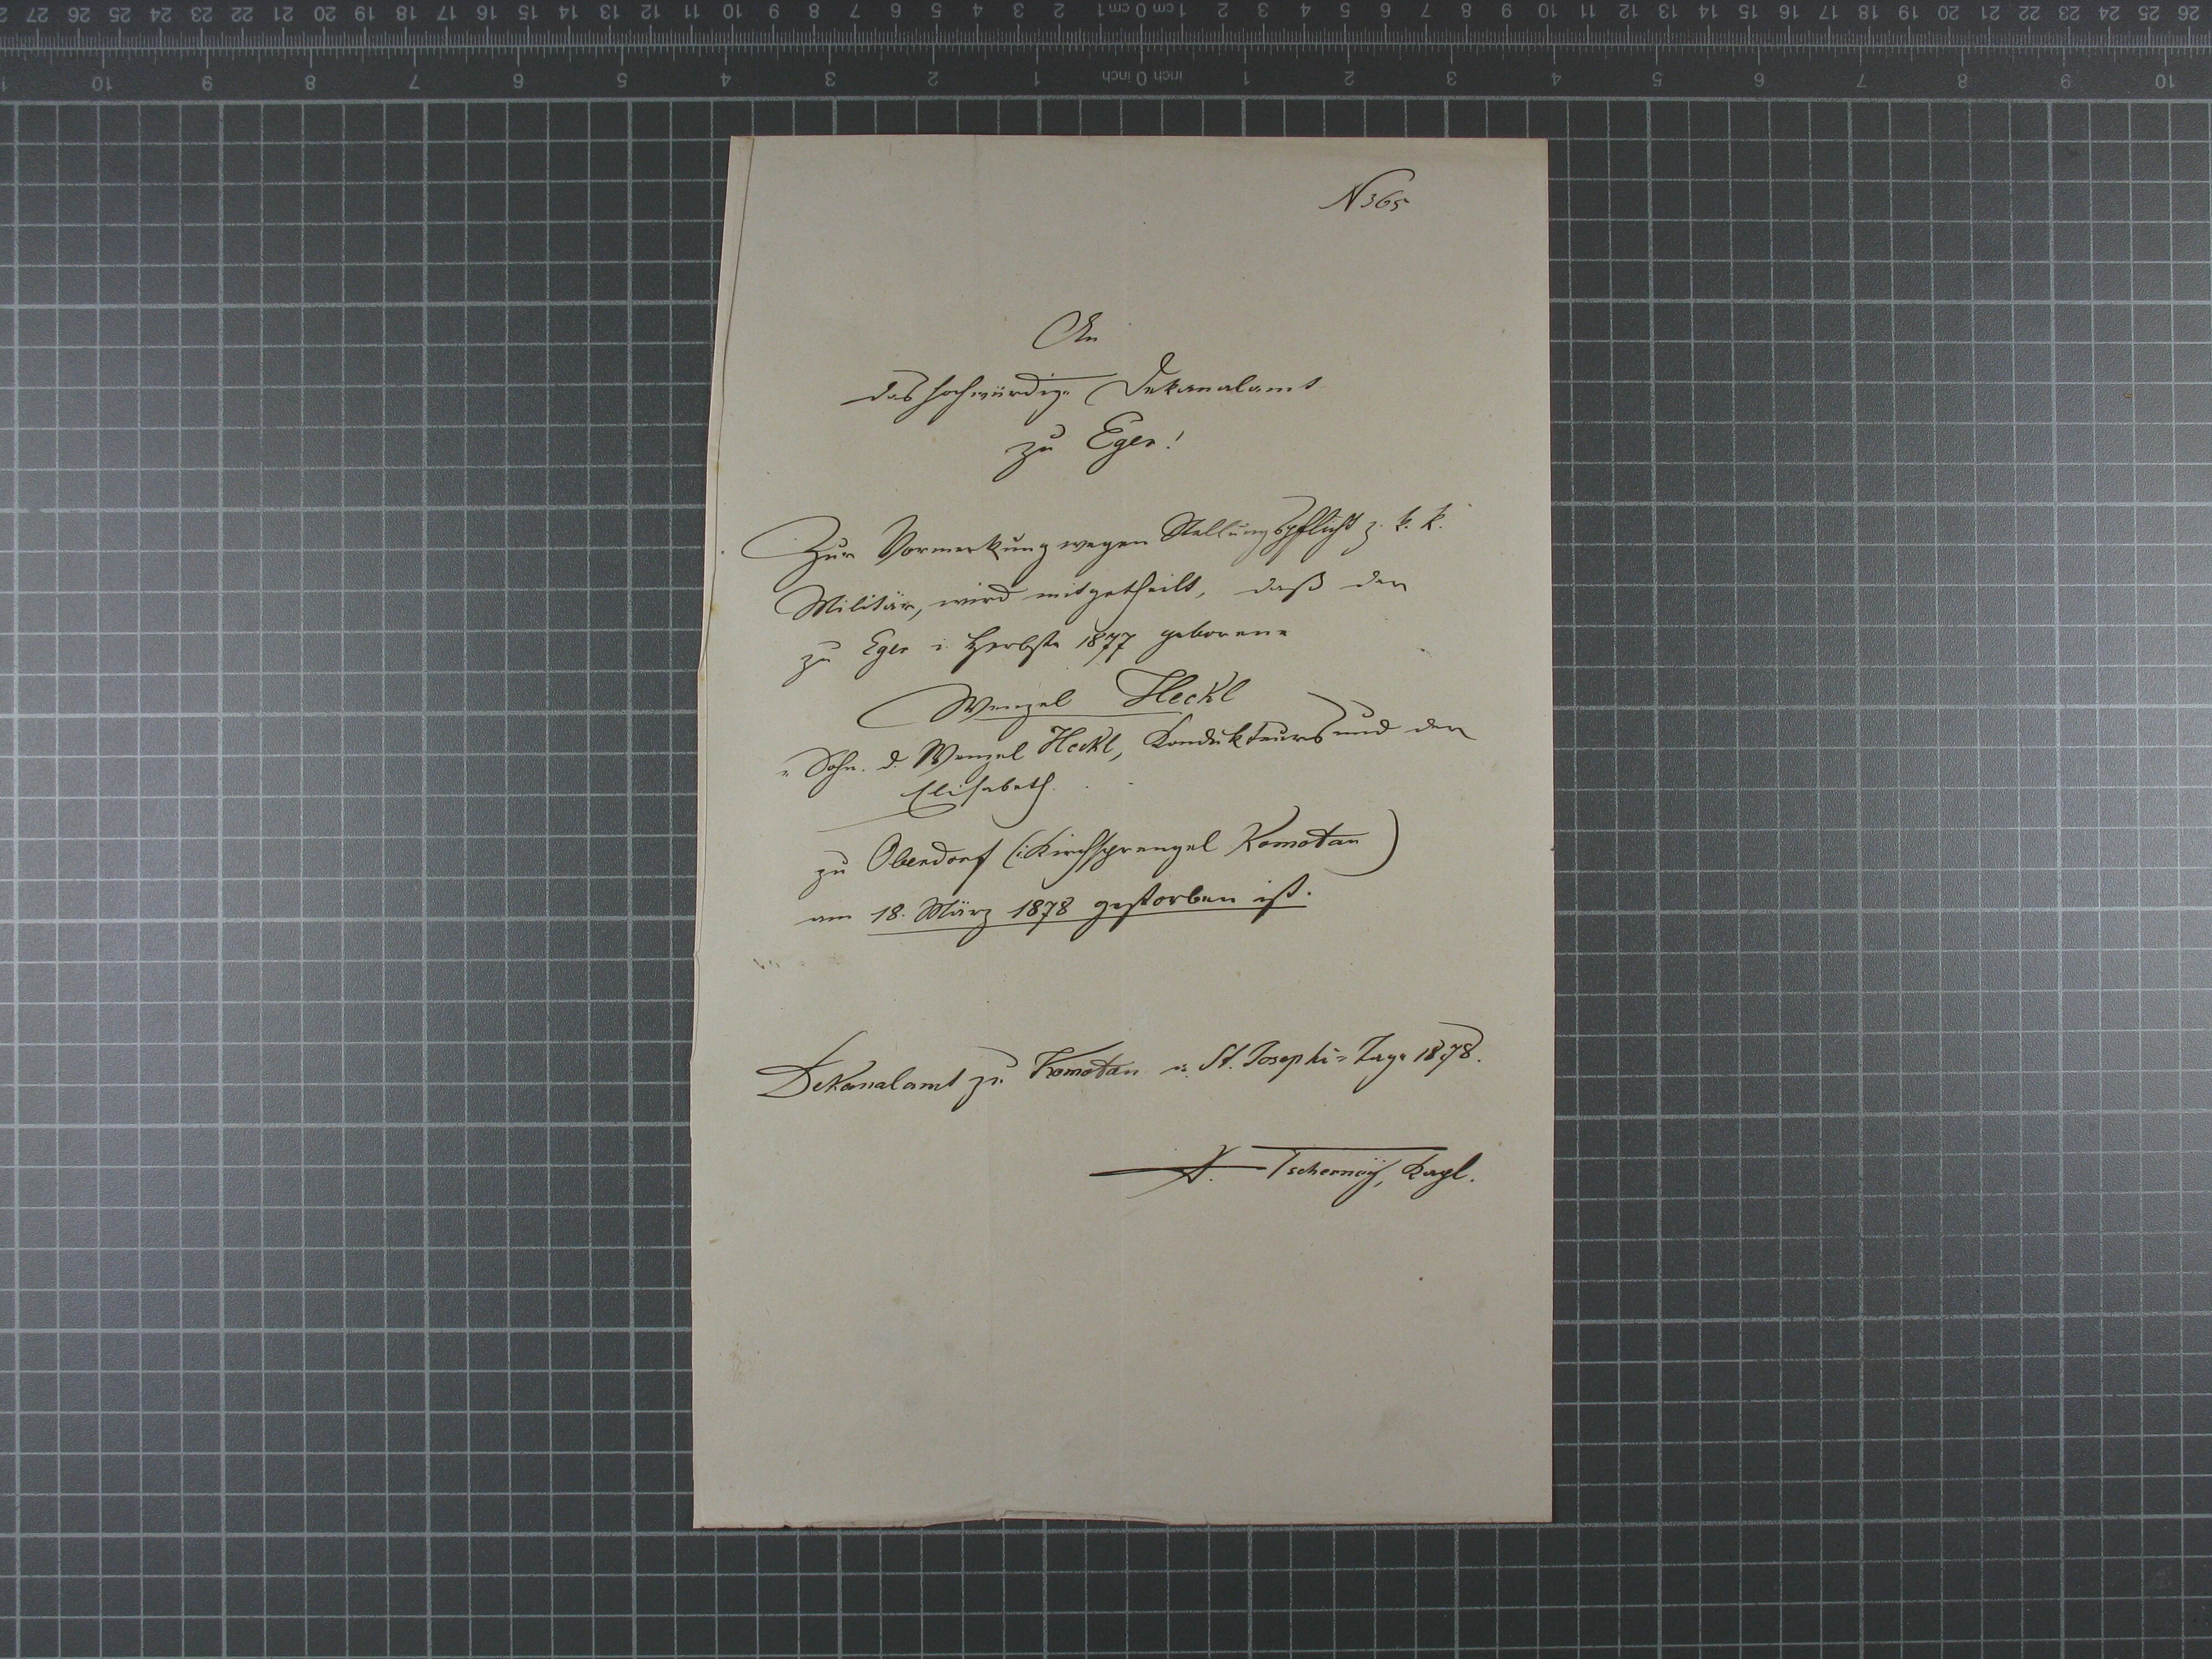 27 26 25 24 23 22 21 20 19 18 17 16 15 14 13 12 11 10 9 8 7 6 5 4 3 2 1 cm 0 1 cm 1 2 3 4 5 6 7 8 9 10 11 12 13 14 15 16 17 18 19 20 21 22 23 24 25 26
10 9 8 7 6 5 4 3 2 1 inch 0 inch 1 2 3 4 5 6 7 8 9 10
N 365
An
das hochwürdige Dekanalamt
zu Eger!
Zur Vormerkung wegen Stellungspflicht z. k. k.
Militär, wird mitgetheilt, daß der
zu Eger i. Herbste 1877 geborene
Wenzel Heckl
Sohn d. Wenzel Heckl, Kondukteurs und der
Elisabeth
zu Oberdorf (: Kirchsprengel Komotau)
am 18. März 1878 gestorben ist.
Dekanalamt zu Komotau St. Josephi-Tage 1878.
Kapl.